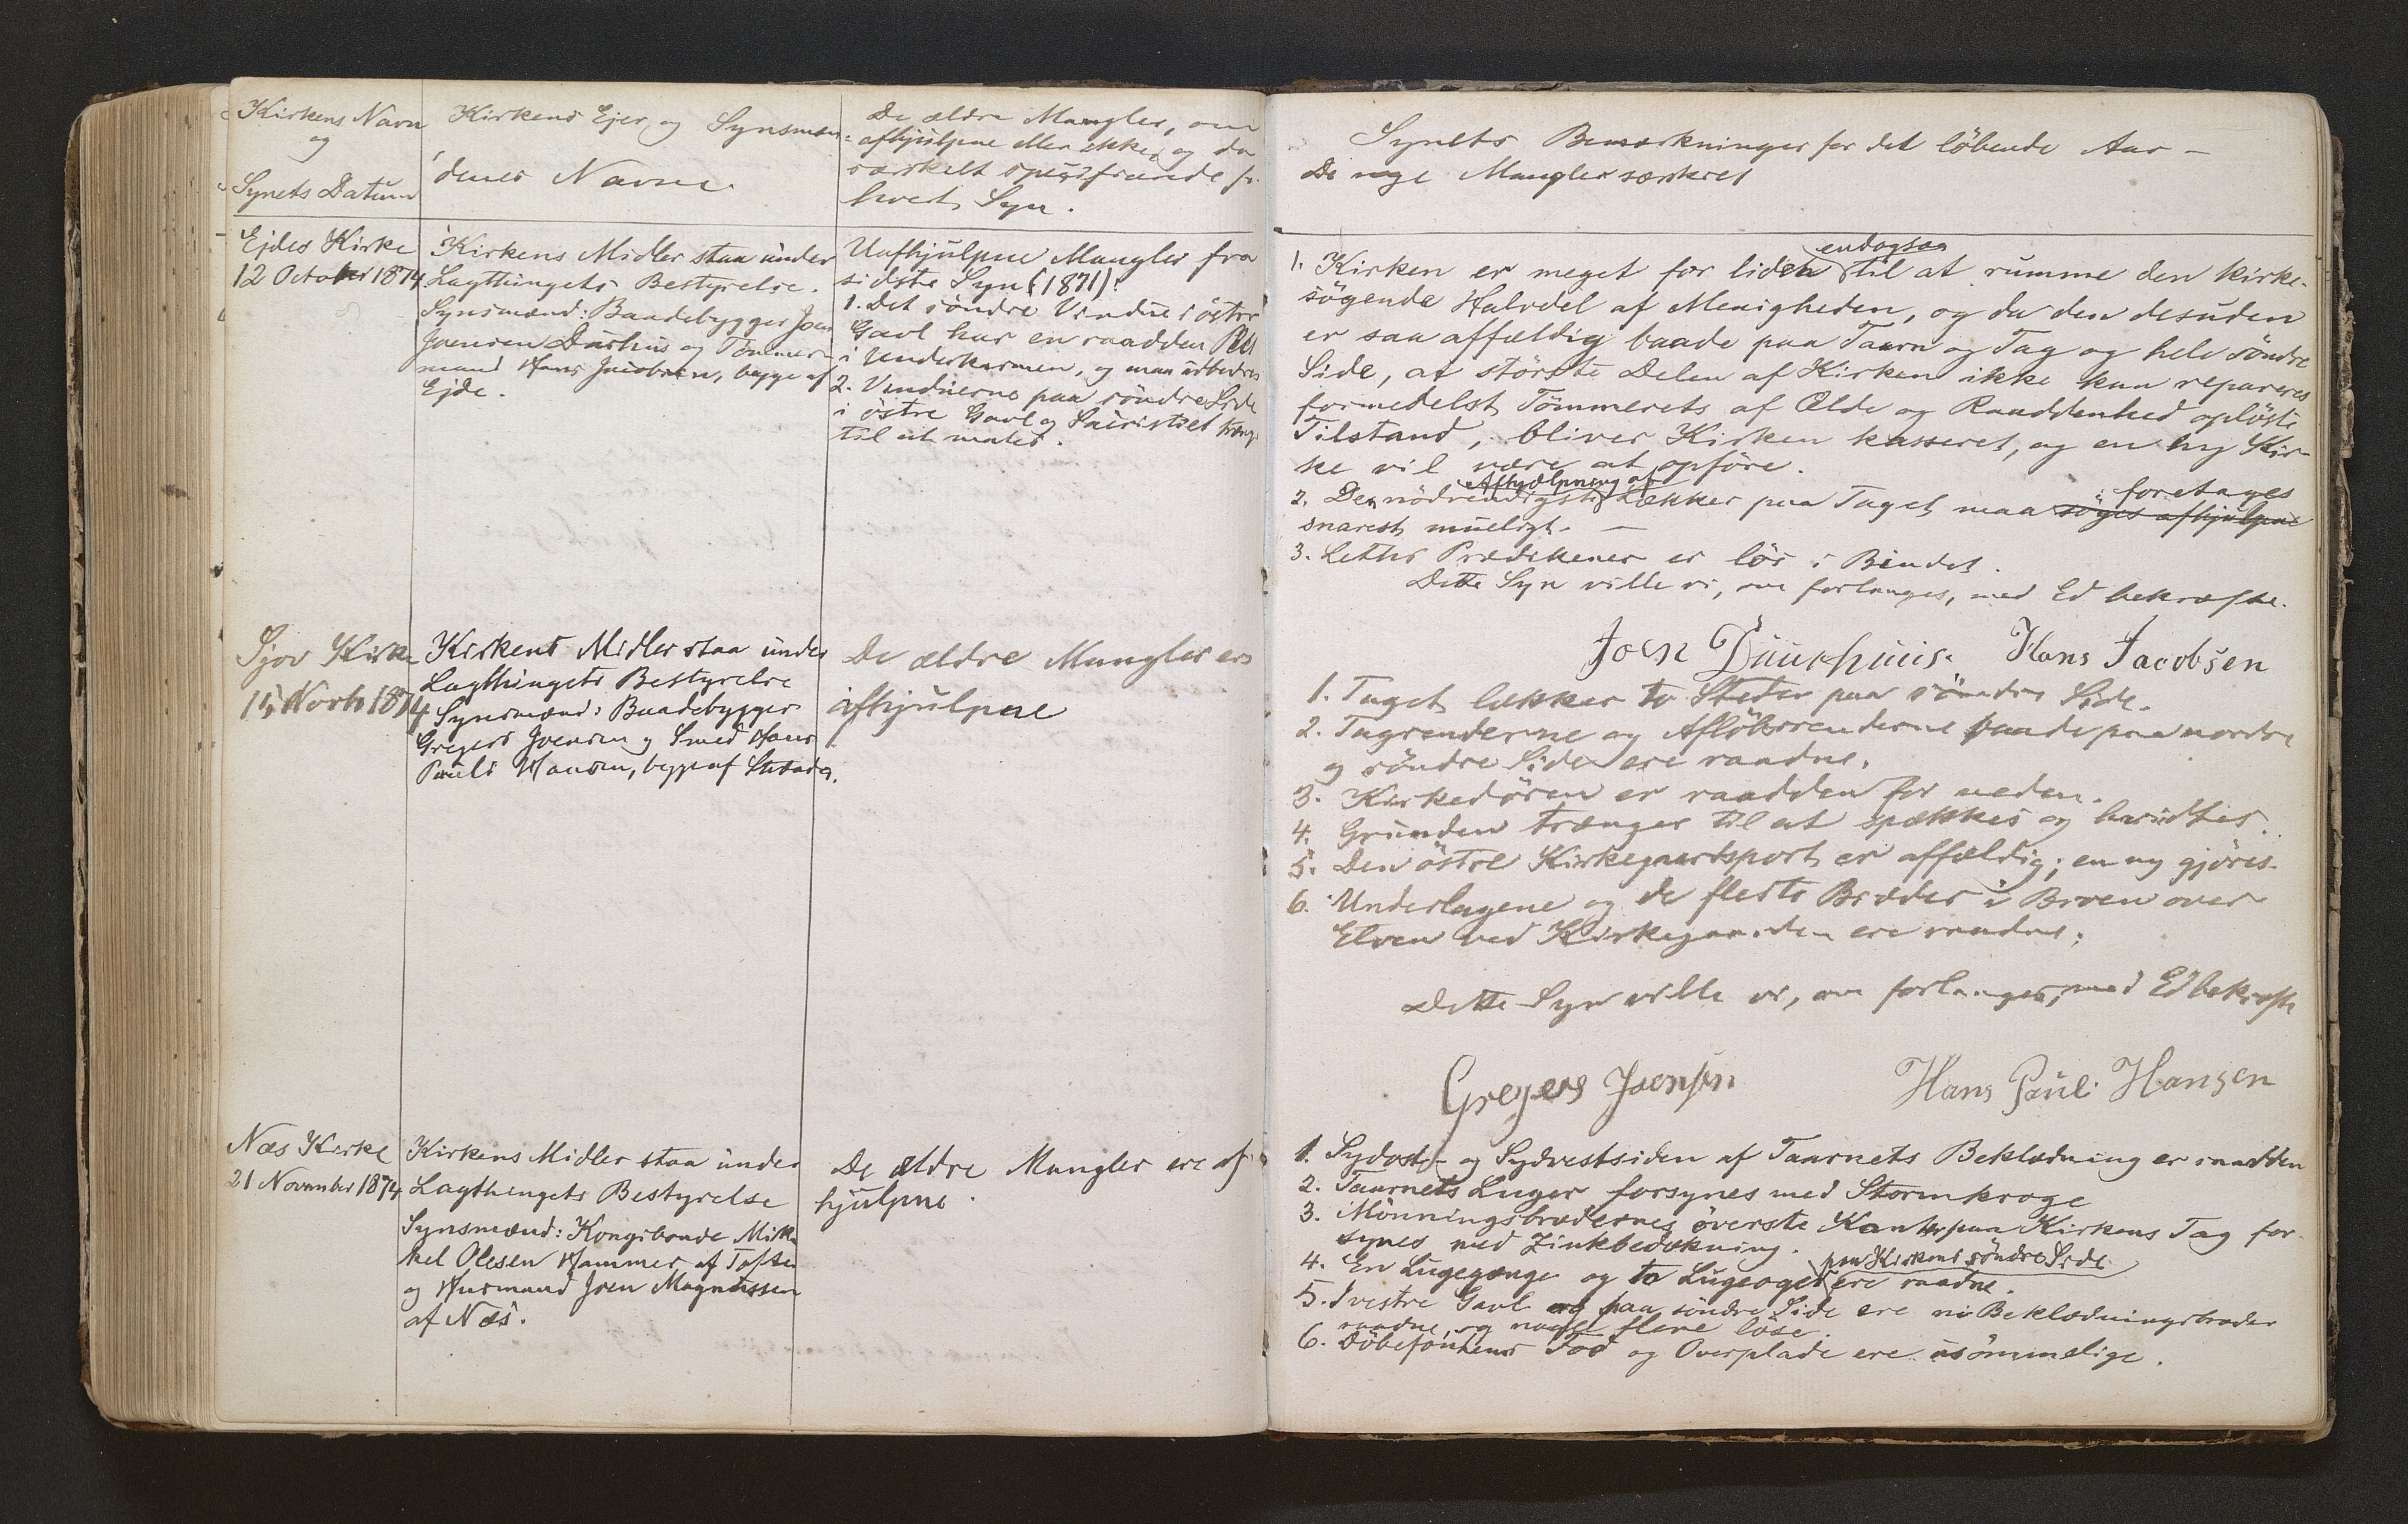 Kirkens Navn
og
Synets Datum
Kirkens Ejer og Synsmæn-
denes Navne
De ældre Mangler, om
afhjulpne eller ikke, og da
særskelt specificerede fr.
hvert Syn.
Ejdes Kirke
12 October 1874
Kirkens Midler staa under
Lagthingets Bestyrelse.
Synsmænd: Baadebygger Joen
Joensen Durhus og Tömmer-
mand Hans Jacobsen, begge af
Ejde.
Uafhjulpne Mangler fra
sidste Syn (1871):
1. Det söndre Vindue i östre
Gavl har en raadden
i Underkarmen, og maa udbedres
2. Vinduerne paa söndre Side
i östre Gavl og Sacristiet træng
til at males.
Sjov Kirke
15 Novbr 1874
Kirkens Midler staa under
Lagthingets Bestyrelse
Synsmænd: Baadebygger
Gregers Joensen og Smed Hans
Pauli Hansen, begge af
De ældre Mangler ere
afhjulpne
Næs Kirke
21 November 1874
Kirkens Midler staa under
Lagthingets Bestyrelse
Synsmænd: Kongsbonde Mik-
kel Olesen Hammer af Toften
og Husmand Joen Magnussen
af Næs.
De ældre Mangler ere af-
hjulpne.
Synets Bemærkninger for det löbende Aar -
De nye Mangler særskelt
endogsaa
1. Kirken er meget for liden til at rumme den kirke-
sögende Halvdel af Menigheden, og da den desuden
er saa affældig baade paa Taarn og Tag og hele söndre
Side, at störste Delen af Kirken ikke kan repareres
formedelst Tömmerets af Ælde og Raaddenhed oplöste
Tilstand, bliver Kirken kasseret, og en ny Kir-
ke vil være at opföre.
Afhjælpning af
foretages
2. De nödvendigste Lækker paa Taget maa söges afhjulpne
snarest mueligt. -
3. Leths Prædikener er lös i Bindet.
Dette Syn ville vi, om forlanges, med Ed bekræfte.
Joen Duurhuus. Hans Jacobsen
1. Taget lækker to Steder paa söndre Side.
2. Tagrenderne og Aflöbsrenderne baade paa nordre
og söndre Side ere raadne.
3. Kirkedören er raadden for neden.
4. Grunden trænger til at spækkes og hvidtes.
5. Den östre Kirkegaardsport er affældig; en ny gjöres.
6. Underlagene og de fleste Brædder i Broen over
Elven ved Kirkegaarden ere raadne.
Dette Syn ville vi, om forlanges, med Ed bekræfte
Gregers Joensen Hans Pauli Hansen
1. Sydost- og Sydvestsiden af Taarnets Beklædning er raadden
2. Taarnets Luger forsynes med Stormkroge
3. Mönningsbrædernes överste Kanter paa Kirkens Tag for-
synes med Zinkbedækning.
paa Kirkens söndre Side
4. En Lugegænge og to Lugeoger ere raadne.
5. I vestre Gavl og paa söndre Side ere ni Beklædningsbræder
raadne, og nogle flere löse.
6. Döbefontens Fod og Overplade ere usömmelige.